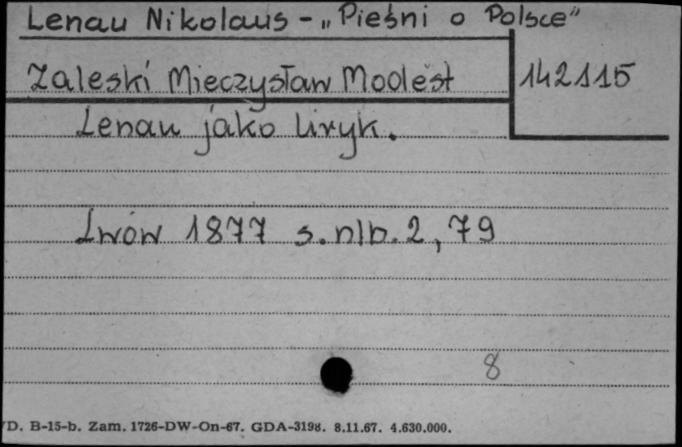 Lenau Nikolaus - „Pieśni o Polsce"
Zaleski Mieczysław Modest 142115
Lenau jako liryk.
Lwów 1877 s. nlb. 2, 79
8
D. B-15-b. Zam. 1726-DW-On-67. GDA-3198. 8.11.67. 4.630.000.